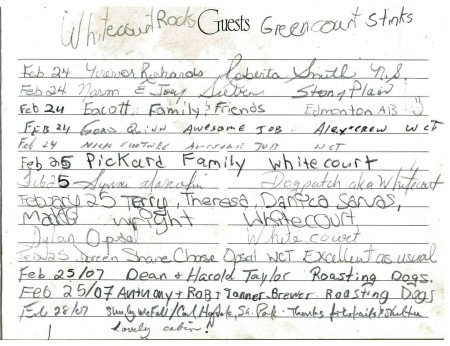 Whitecourt Rocks Guests Greencourt Stinks
Feb 24 Richards Roberta Smith N.S.
Feb 24 Norm & Joey Stony Plain
Feb 24 Eacott Family & Friends Edmonton AB
FEB 24 Gord Quinn Awesome JOB Alex + crew WCT
Feb 24 Awesome JOB WCT
Feb 25 Pickard Family Whitecourt
Feb 25 Dogpatch aka Whitecourt
February 25 Terry, Theresa, Danyca Sarvas,
Wright Whitecourt
Dylan Opsal Whitecourt
Feb 25 Doreen Shane Chase Opsal WCT Excellent as usual
Feb 25/07 Dean + Harold Taylor Roasting Dogs.
Feb 25/07 Anthony + ROB + Tanner Brewer Roasting Dogs
Feb 28/07 Park - Thanks for trails & shelter
lovely cabin!